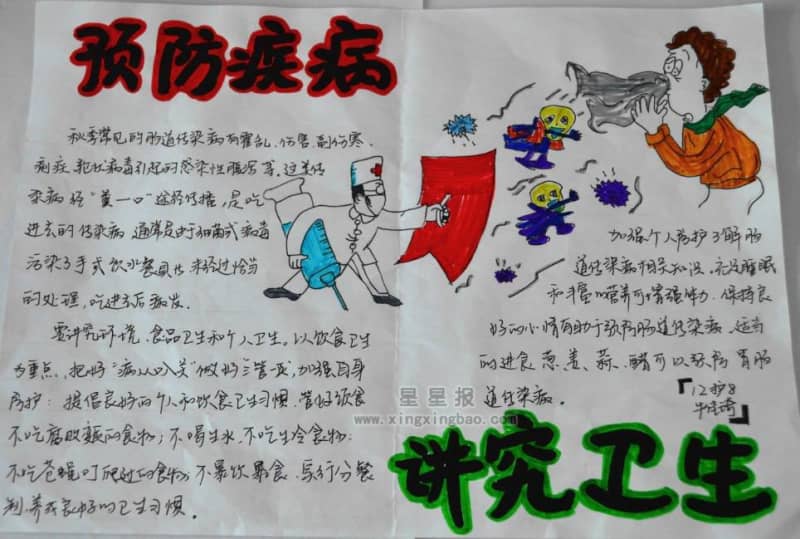 预防疾病
秋季常见的肠道传染病有霍乱,伤害,副伤寒,
痢疾,轮状病毒引起的感染性腹泻等,这类传
染病经“粪一口”途径传播,是吃
进去的传染病,通常是由于细菌或病毒
污染了手或饮水餐具,未经过恰当
的处理,吃进去后病发。
要讲究环境、食品卫生和个人卫生。以饮食卫生
为重点,把好“病从口入关”做好三管一灭,加强自身
防护:提倡良好的个人和饮食卫生习惯,管好饮食
不吃腐败的食物;不喝生水,不吃生冷食物;
不吃苍蝇叮爬过的食物;不暴饮暴食,实行分餐
制,养成良好的卫生习惯。
加强个人防护,了解肠
道传染病相关知识,充足睡眠
和丰富的营养可增强体力,保持良
好的心情有助于预防肠道传染病,适当
的进食葱、姜、蒜、醋可以预防胃肠
道传染病。
「12护8
」
讲究卫生
星星报
www.xingxingbao.com